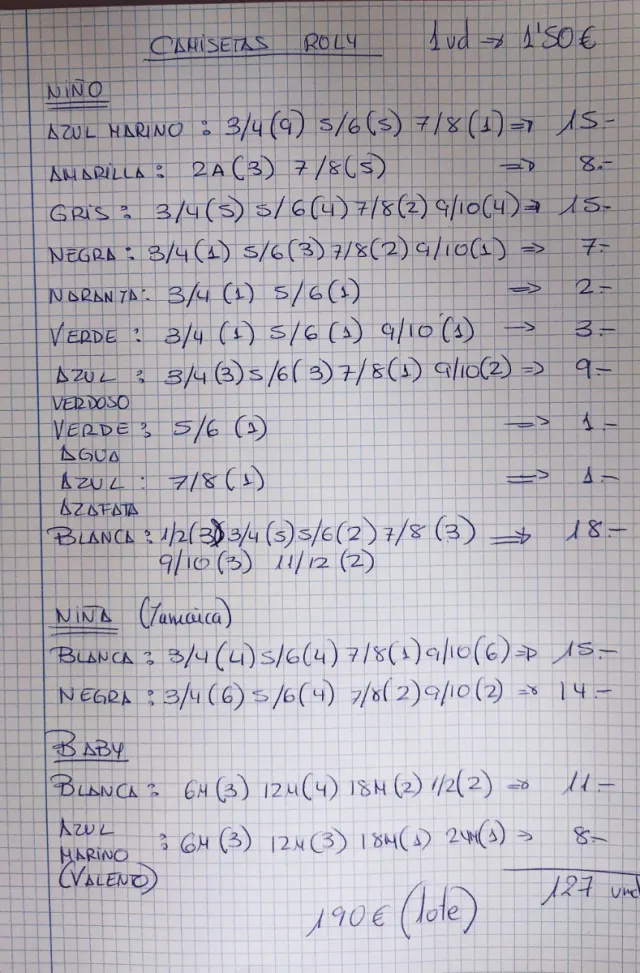 CAMISETAS ROLY 1ud → 1'50€
NIÑO
AZUL MARINO : 3/4(9) 5/6(5) 7/8(1) ⇒ 15.-
AMARILLA : 2A(3) 7/8(5) ⇒ 8.-
GRIS : 3/4(5) 5/6(4) 7/8(2) 9/10(4) ⇒ 15.-
NEGRA : 3/4(1) 5/6(3) 7/8(2) 9/10(1) ⇒ 7.-
NARANJA : 3/4 (1) 5/6(1) ⇒ 2.-
VERDE : 3/4 (1) 5/6 (1) 9/10 (1) → 3.-
AZUL : 3/4(3) 5/6(3) 7/8(1) 9/10(2) ⇒ 9.-
VERDOSO
VERDE : 5/6 (1) ⇒ 1.-
AGUA
AZUL : 7/8(1) ⇒ 1.-
AZAFATA
BLANCA : 1/2(3) 3/4(5) 5/6(2) 7/8(3) ⇒ 18.-
9/10(3) 11/12(2)
NIÑA (Jamaica)
BLANCA : 3/4(4) 5/6(4) 7/8(1) 9/10(6) ⇒ 15.-
NEGRA : 3/4(6) 5/6(4) 7/8(2) 9/10(2) ⇒ 14.-
BABY
BLANCA : 6M(3) 12M(4) 18M(2) 1/2(2) ⇒ 11.-
AZUL
MARINO : 6M(3) 12M(3) 18M(1) 24M(1) ⇒ 8.-
(VALENTO)
127 und
190€ (lote)